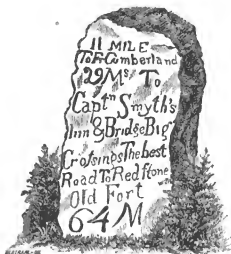 11 MILE
To Ft Cumberland
29 Ms To
Captn Smyth's
Inn & Bridge Big
Crossings The best
Road To Redstone
Old Fort
64 M